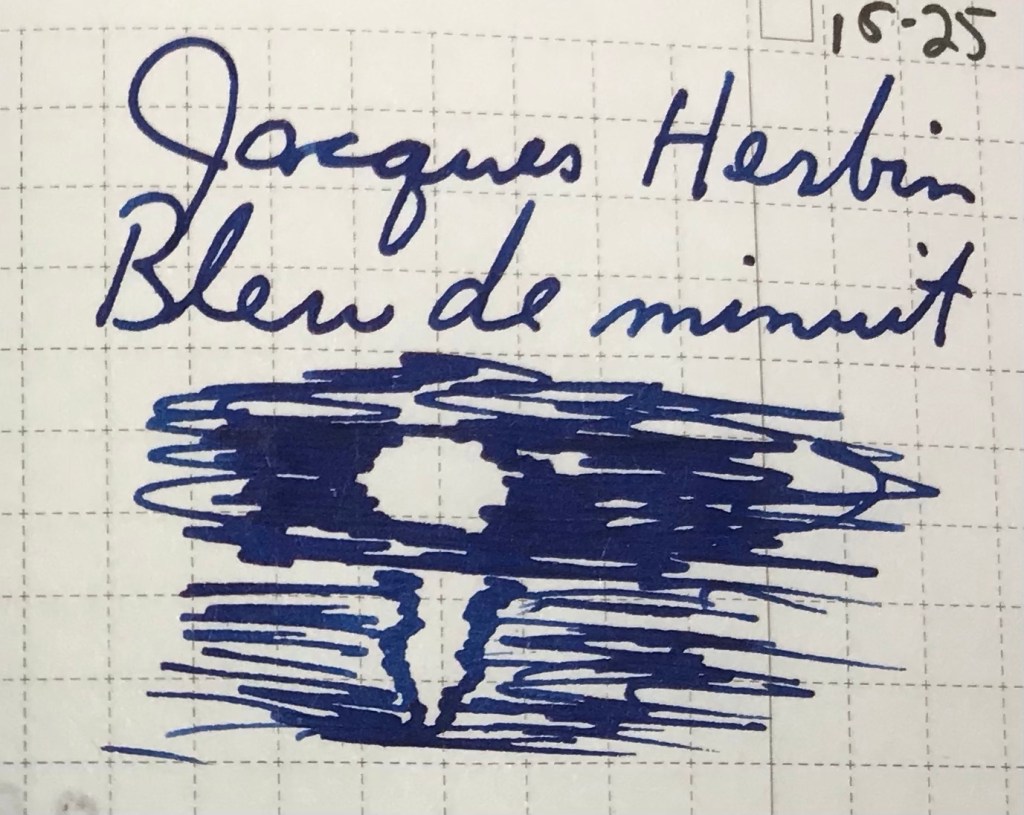 16-25
Jacques Herbin
Bleu de minuit